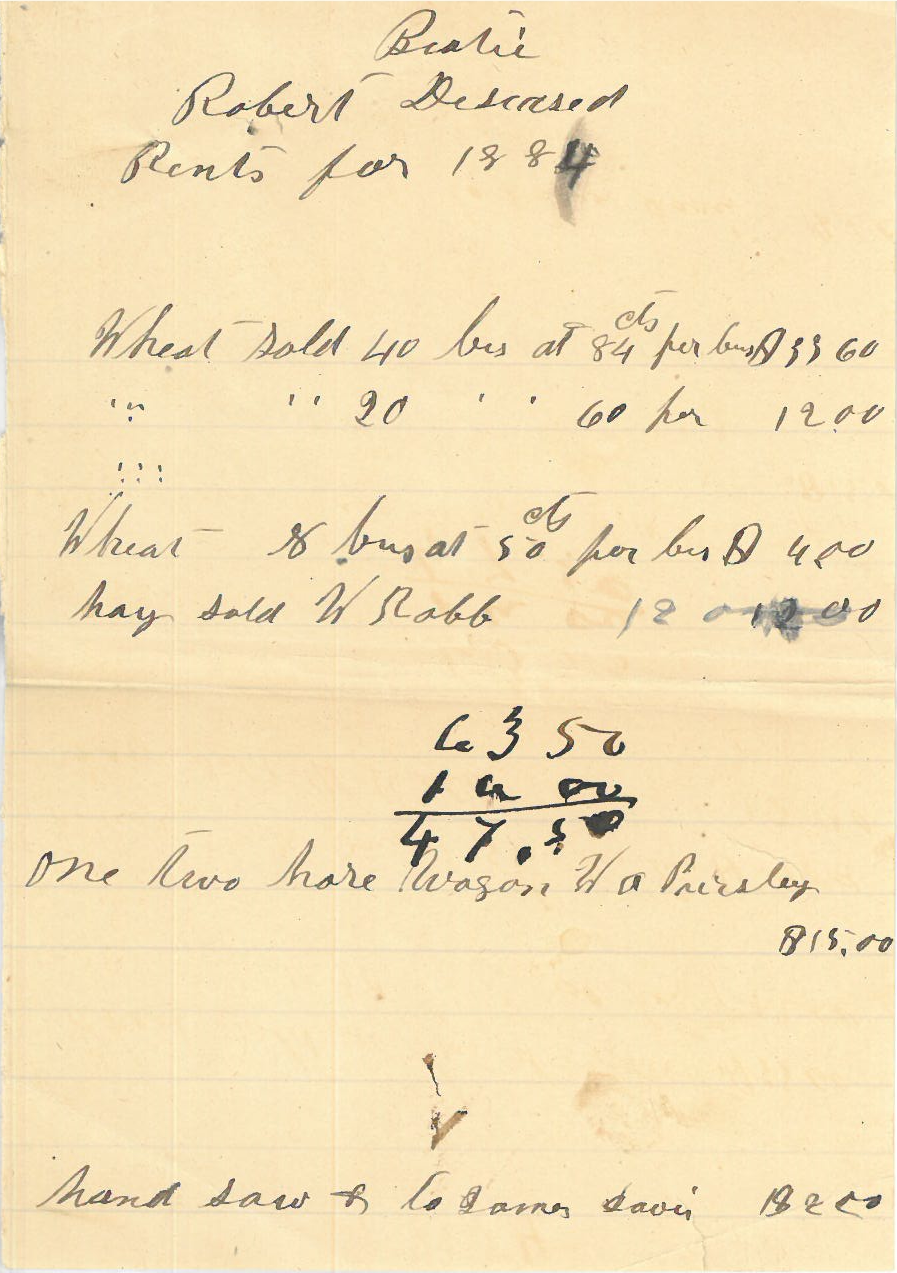 Beatie
Robert Deseased
Rents for 1884
Wheat sold 40 bus at 84 cts per bus $ 33 60
" " 20 " " 60 per 12 00
Wheat 8 bus at 50 cts per bus $ 4 00
hay sold W Robb 12 0 12 00
63 50
16 00
47.50
One two hore Wagon W a Pursley
$15.00
hand saw & Co James Davis $2 00